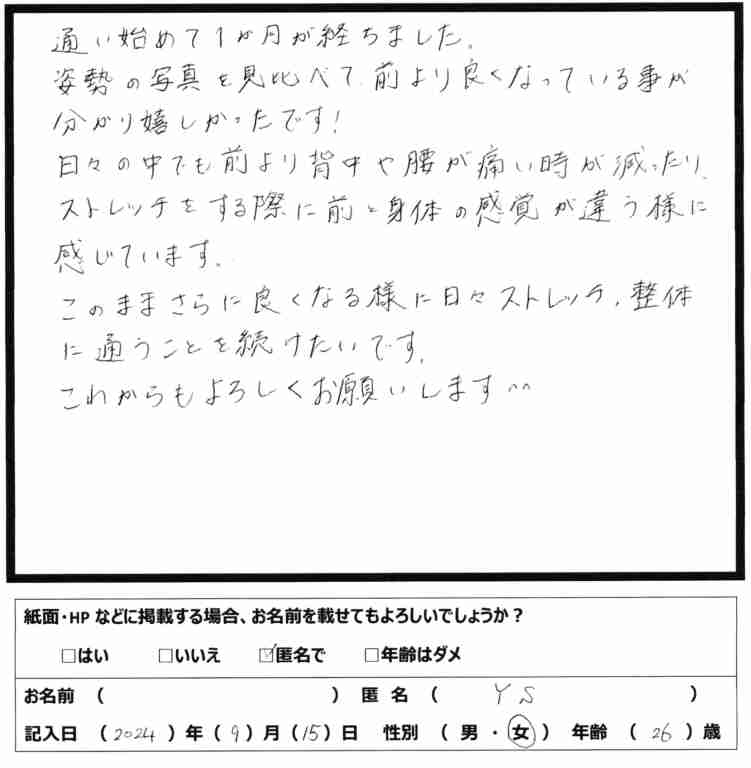 通い始めて1か月が経ちました。
姿勢の写真を見比べて、前より良くなっている事が
分かり嬉しかったです!
日々の中でも前より背中や腰が痛い時が減ったり、
ストレッチをする際に前と身体の感覚が違う様に
感じています。
このままさらに良くなる様に日々ストレッチ、整体
に通うことを続けたいです。
これからもよろしくお願いします^^
紙面・HP などに掲載する場合、お名前を載せてもよろしいでしょうか?
□はい □いいえ ☑匿名で □年齢はダメ
お名前 ( ) 匿名 ( YS )
記入日 (2024) 年 (9) 月 (15) 日 性別 (男・女) 年齢 (26) 歳